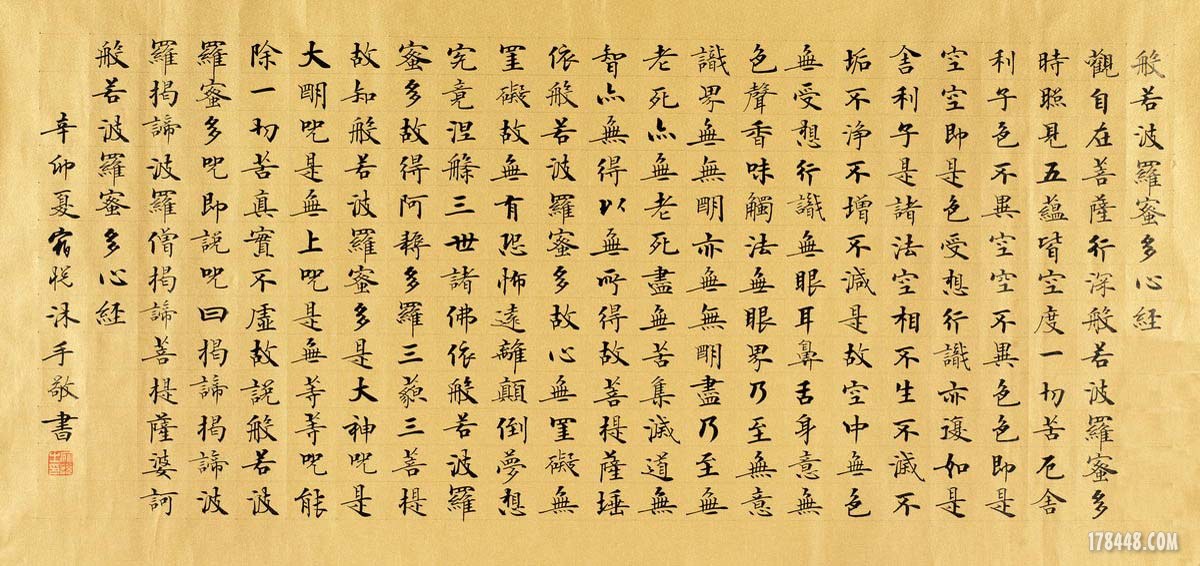 般若波羅蜜多心経
觀自在菩薩行深般若波羅蜜多
時照見五蘊皆空度一切苦厄舍
利子色不異空空不異色色即是
空空即是色受想行識亦復如是
舍利子是諸法空相不生不滅不
垢不淨不增不減是故空中無色
無受想行識無眼耳鼻舌身意無
色聲香味觸法無眼界乃至無意
識界無無明亦無無明盡乃至無
老死亦無老死盡無苦集滅道無
智亦無得以無所得故菩提薩埵
依般若波羅蜜多故心無罣礙無
罣礙故無有恐怖遠離顛倒夢想
究竟涅槃三世諸佛依般若波羅
蜜多故得阿耨多羅三藐三菩提
故知般若波羅蜜多是大神咒是
大明咒是無上咒是無等等咒能
除一切苦真實不虛故說般若波
羅蜜多咒即說咒曰揭諦揭諦波
羅揭諦波羅僧揭諦菩提薩婆訶
般若波羅蜜多心経
辛卯夏宿悅沐手敬書
178448.COM